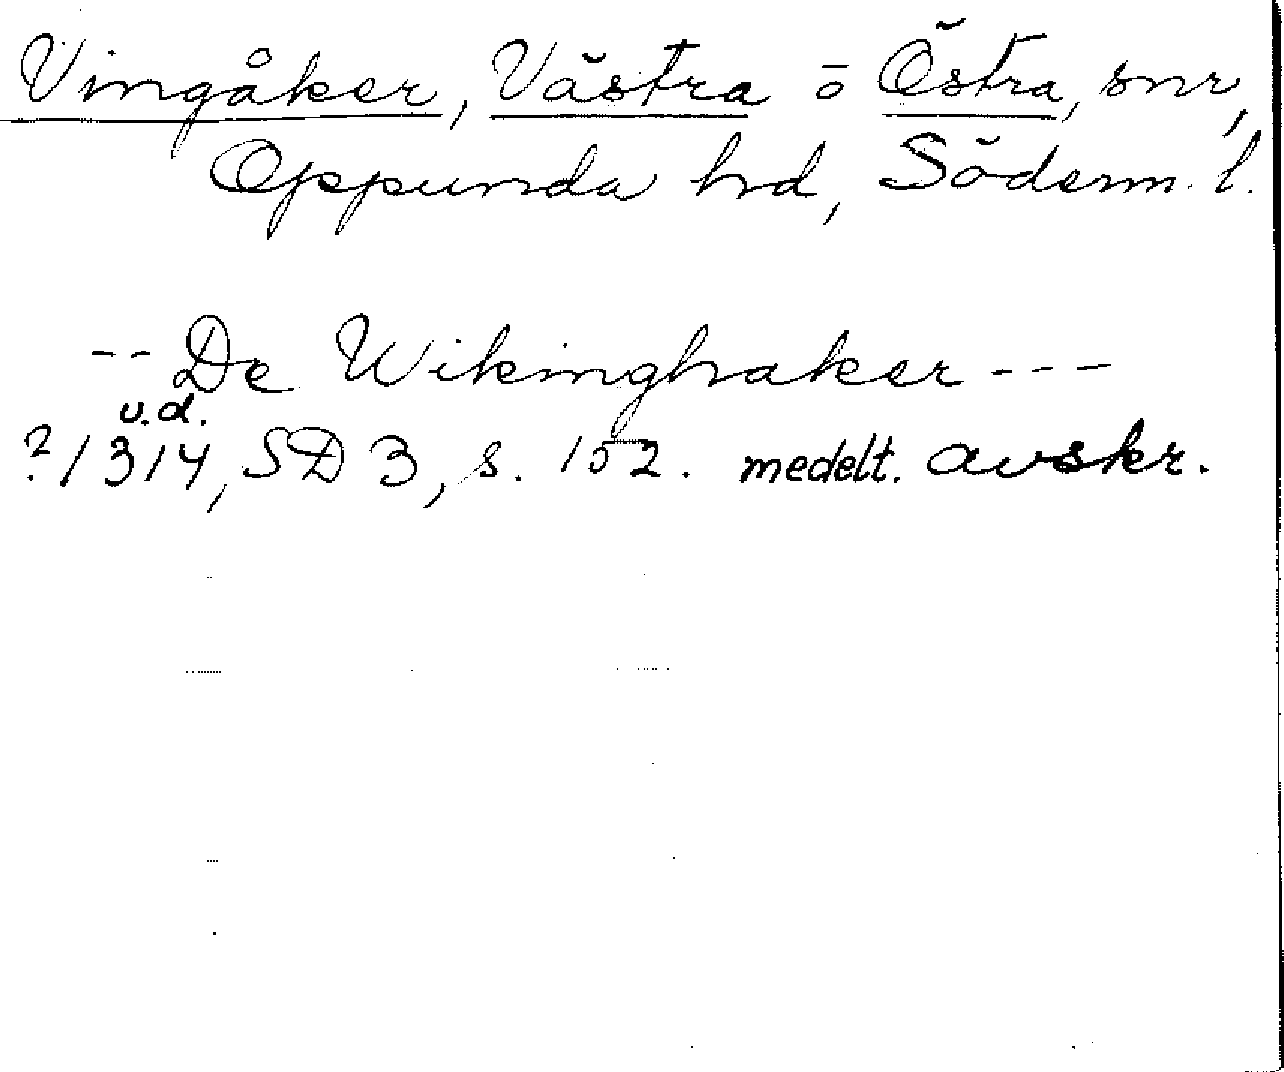 Vingåker, Västra o Östra, snr,
Oppunda hd, Söderm. l.
-- De Wikinghaker ---
u.d.
?/1314, SD 3, s. 152. medelt. avskr.